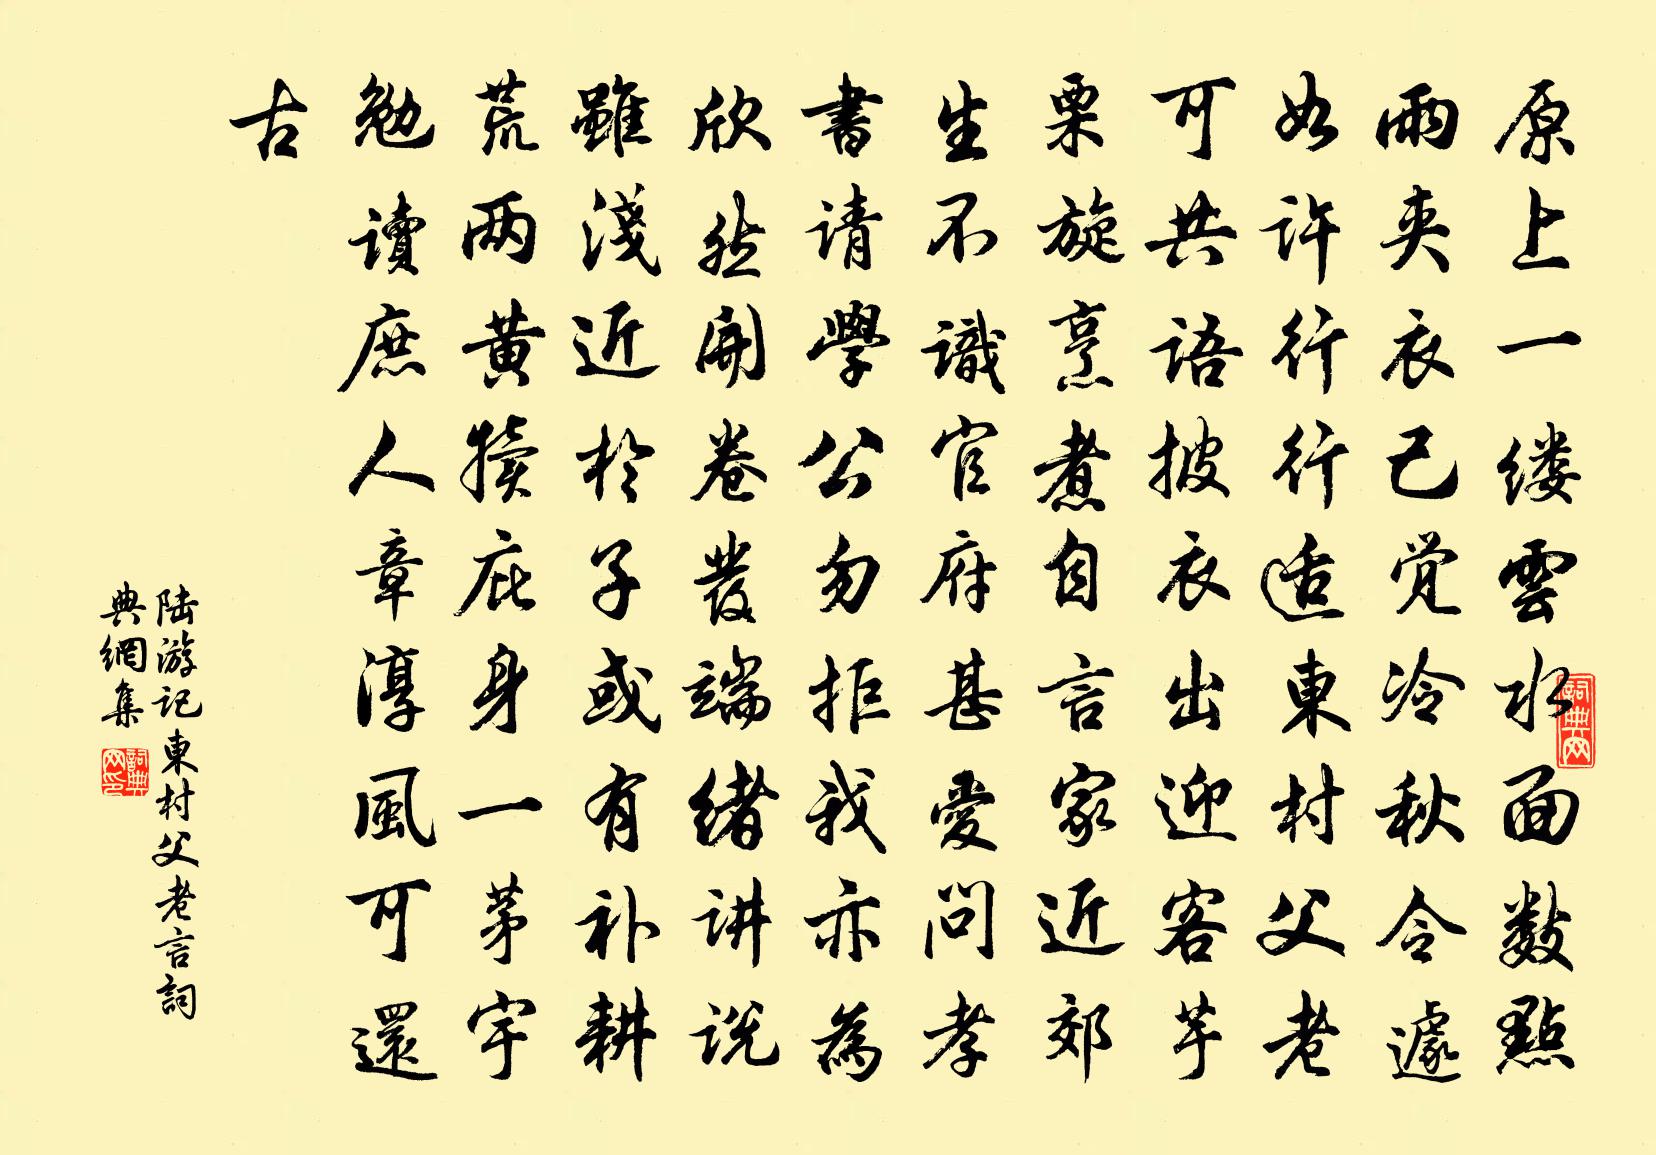 原上一缕雲水面數點
雨夹衣已觉冷秋令遽
如许行行适東村父老
可共语披衣出迎客芋
栗旋烹煮自言家近郊
生不識官府甚愛问孝
書请學公勿拒我亦為
欣然開卷發端绪讲说
雖淺近於子或有补耕
荒两黄犊庇身一茅宇
勉讀庶人章淳風可還
古
陆游记東村父老言詞
典網集
詞典网
詞典网印